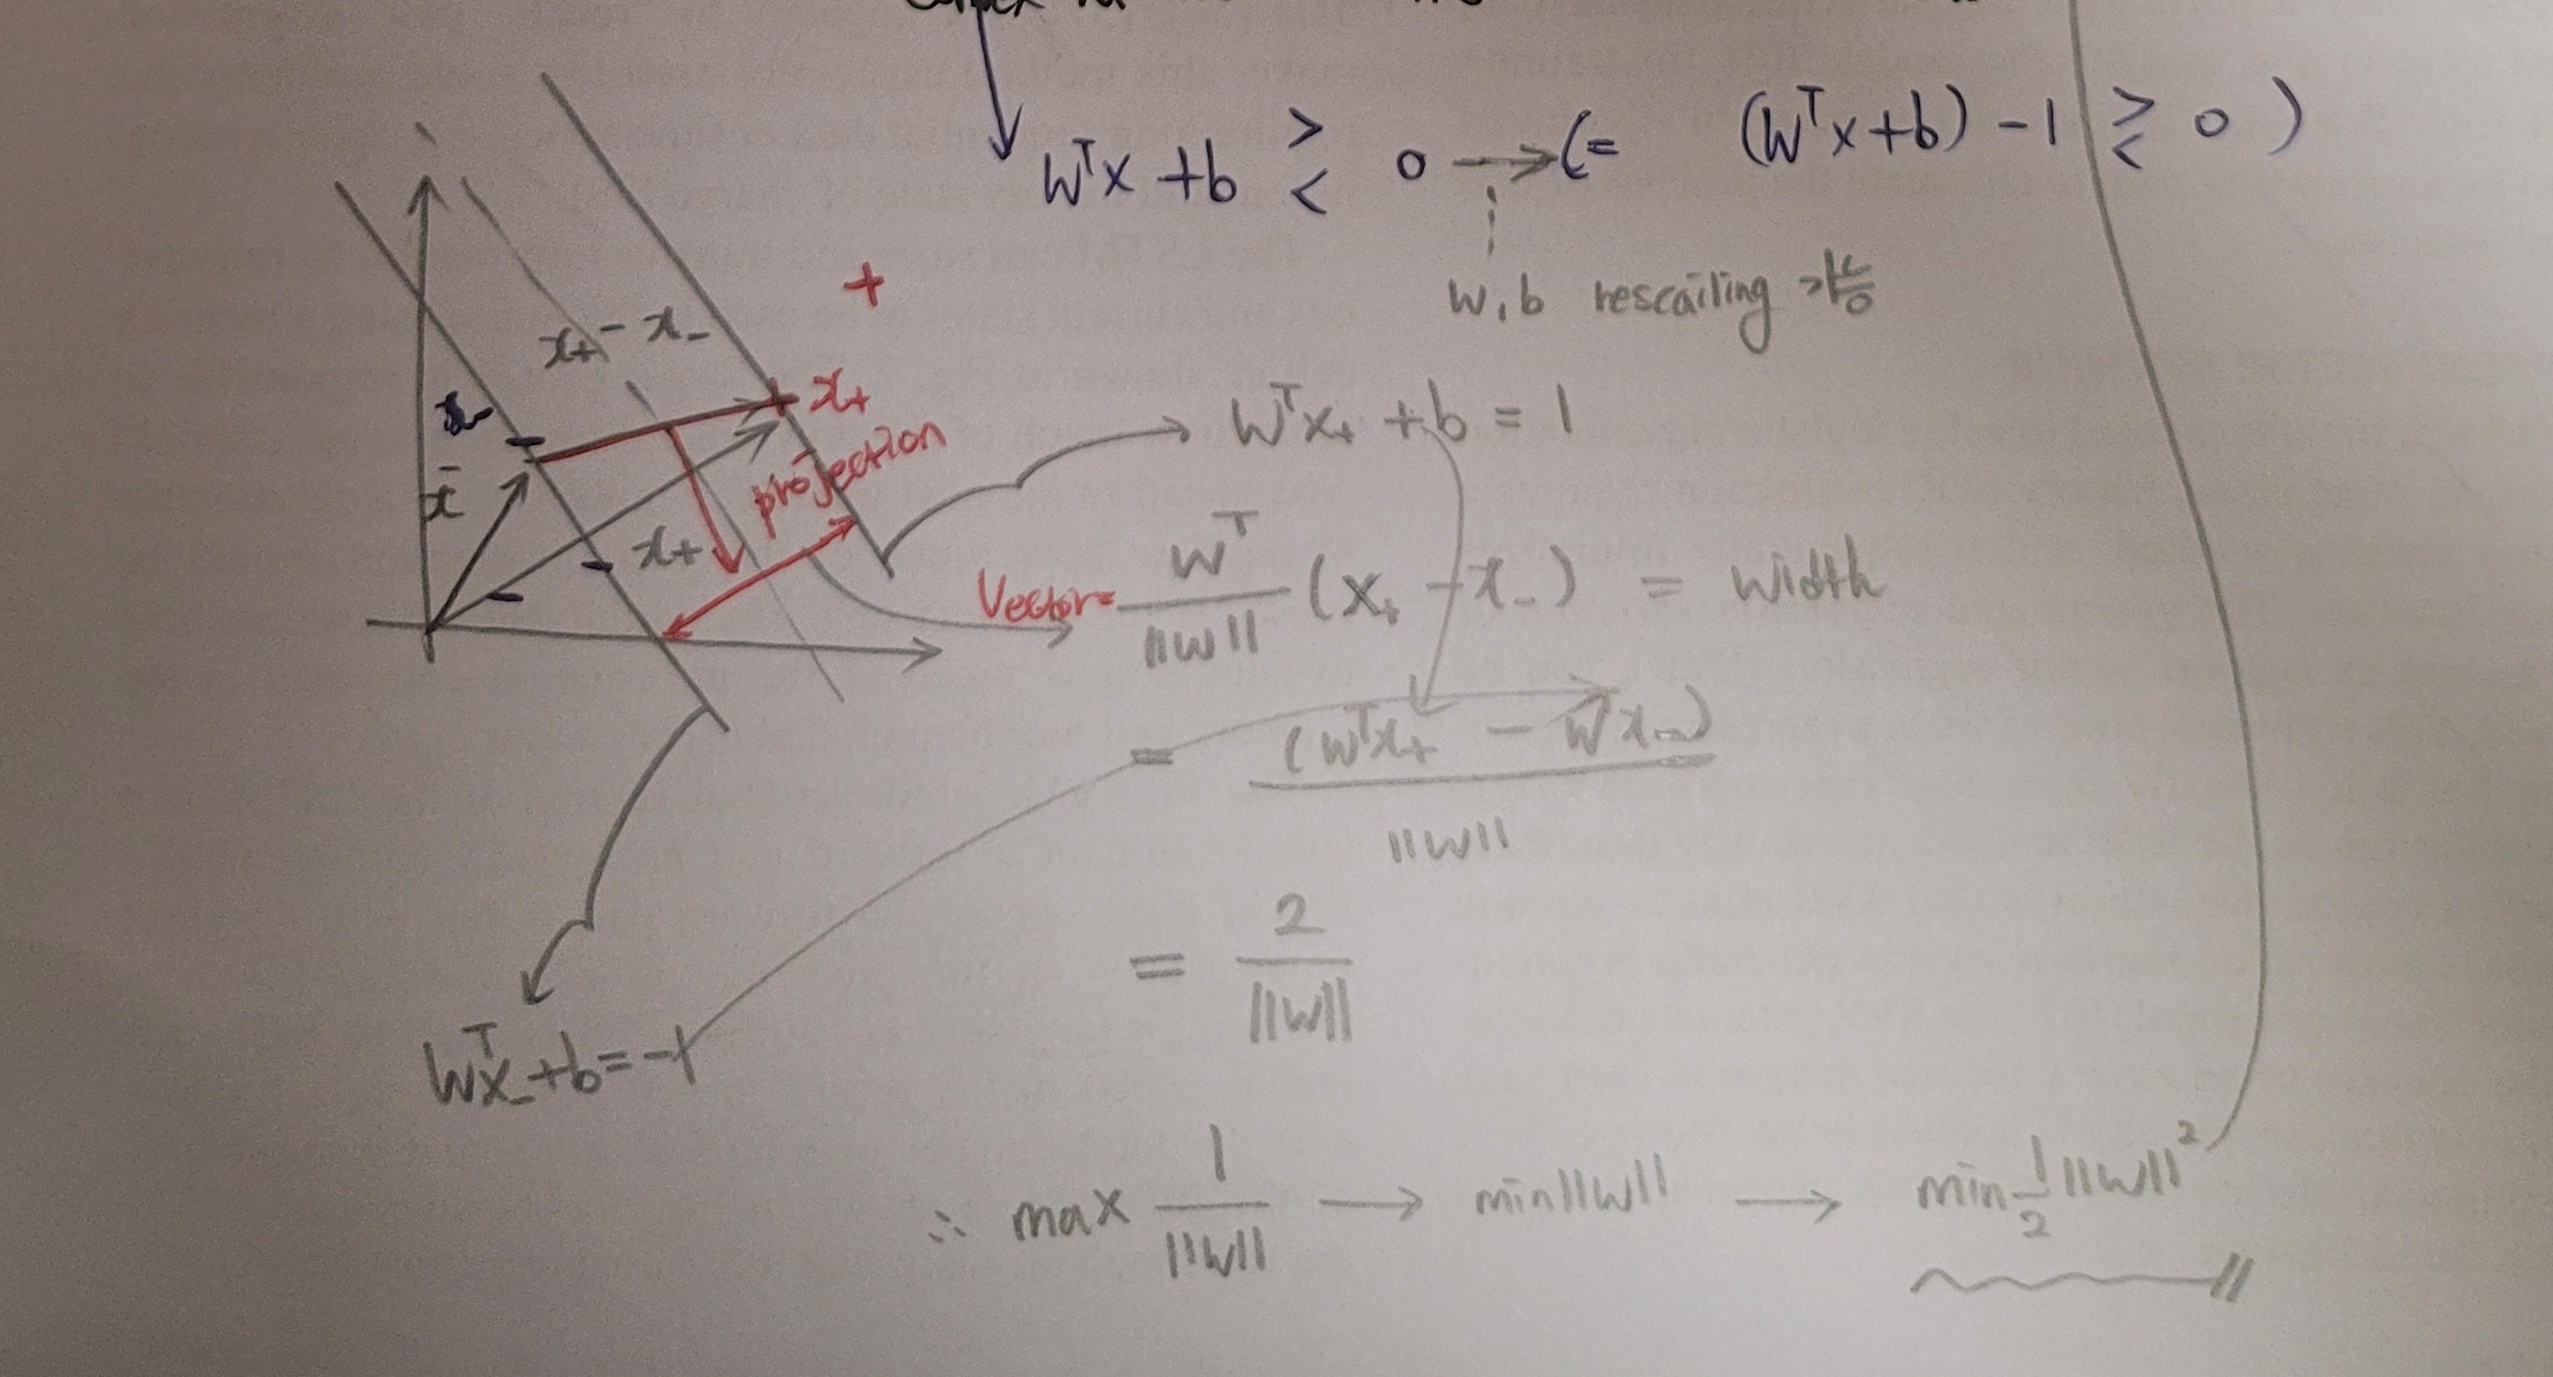 Wᵀx + b ≷ 0 → (= (Wᵀx+b) - 1 ≷ 0 )
w, b rescailing
+
x₊ - x₋
x₊
Wᵀx₊ + b = 1
projection
x₊
Vector = Wᵀ/||W|| (x₊ - x₋) = width
= (Wᵀx₊ - Wᵀx₋)/||W||
= 2/||W||
Wᵀx₋ + b = -1
∴ max 1/||W|| → min||W|| → min 1/2 ||W||²